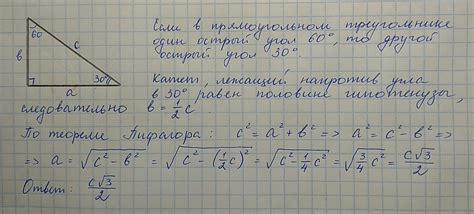 60
в
c
30°
a
Если в прямоугольном треугольнике
один острый угол 60°, то другой
острый угол 30°.
Катет, лежащий напротив угла
в 30° равен половине гипотенузы,
следовательно в = 1/2 c
По теореме Пифагора: c² = a² + в² => a² = c² - в² =>
=> a = √(c² - в²) = √(c² - (1/2 c)²) = √(c² - 1/4 c²) = √(3/4 c²) = c√3/2
Ответ: c√3/2